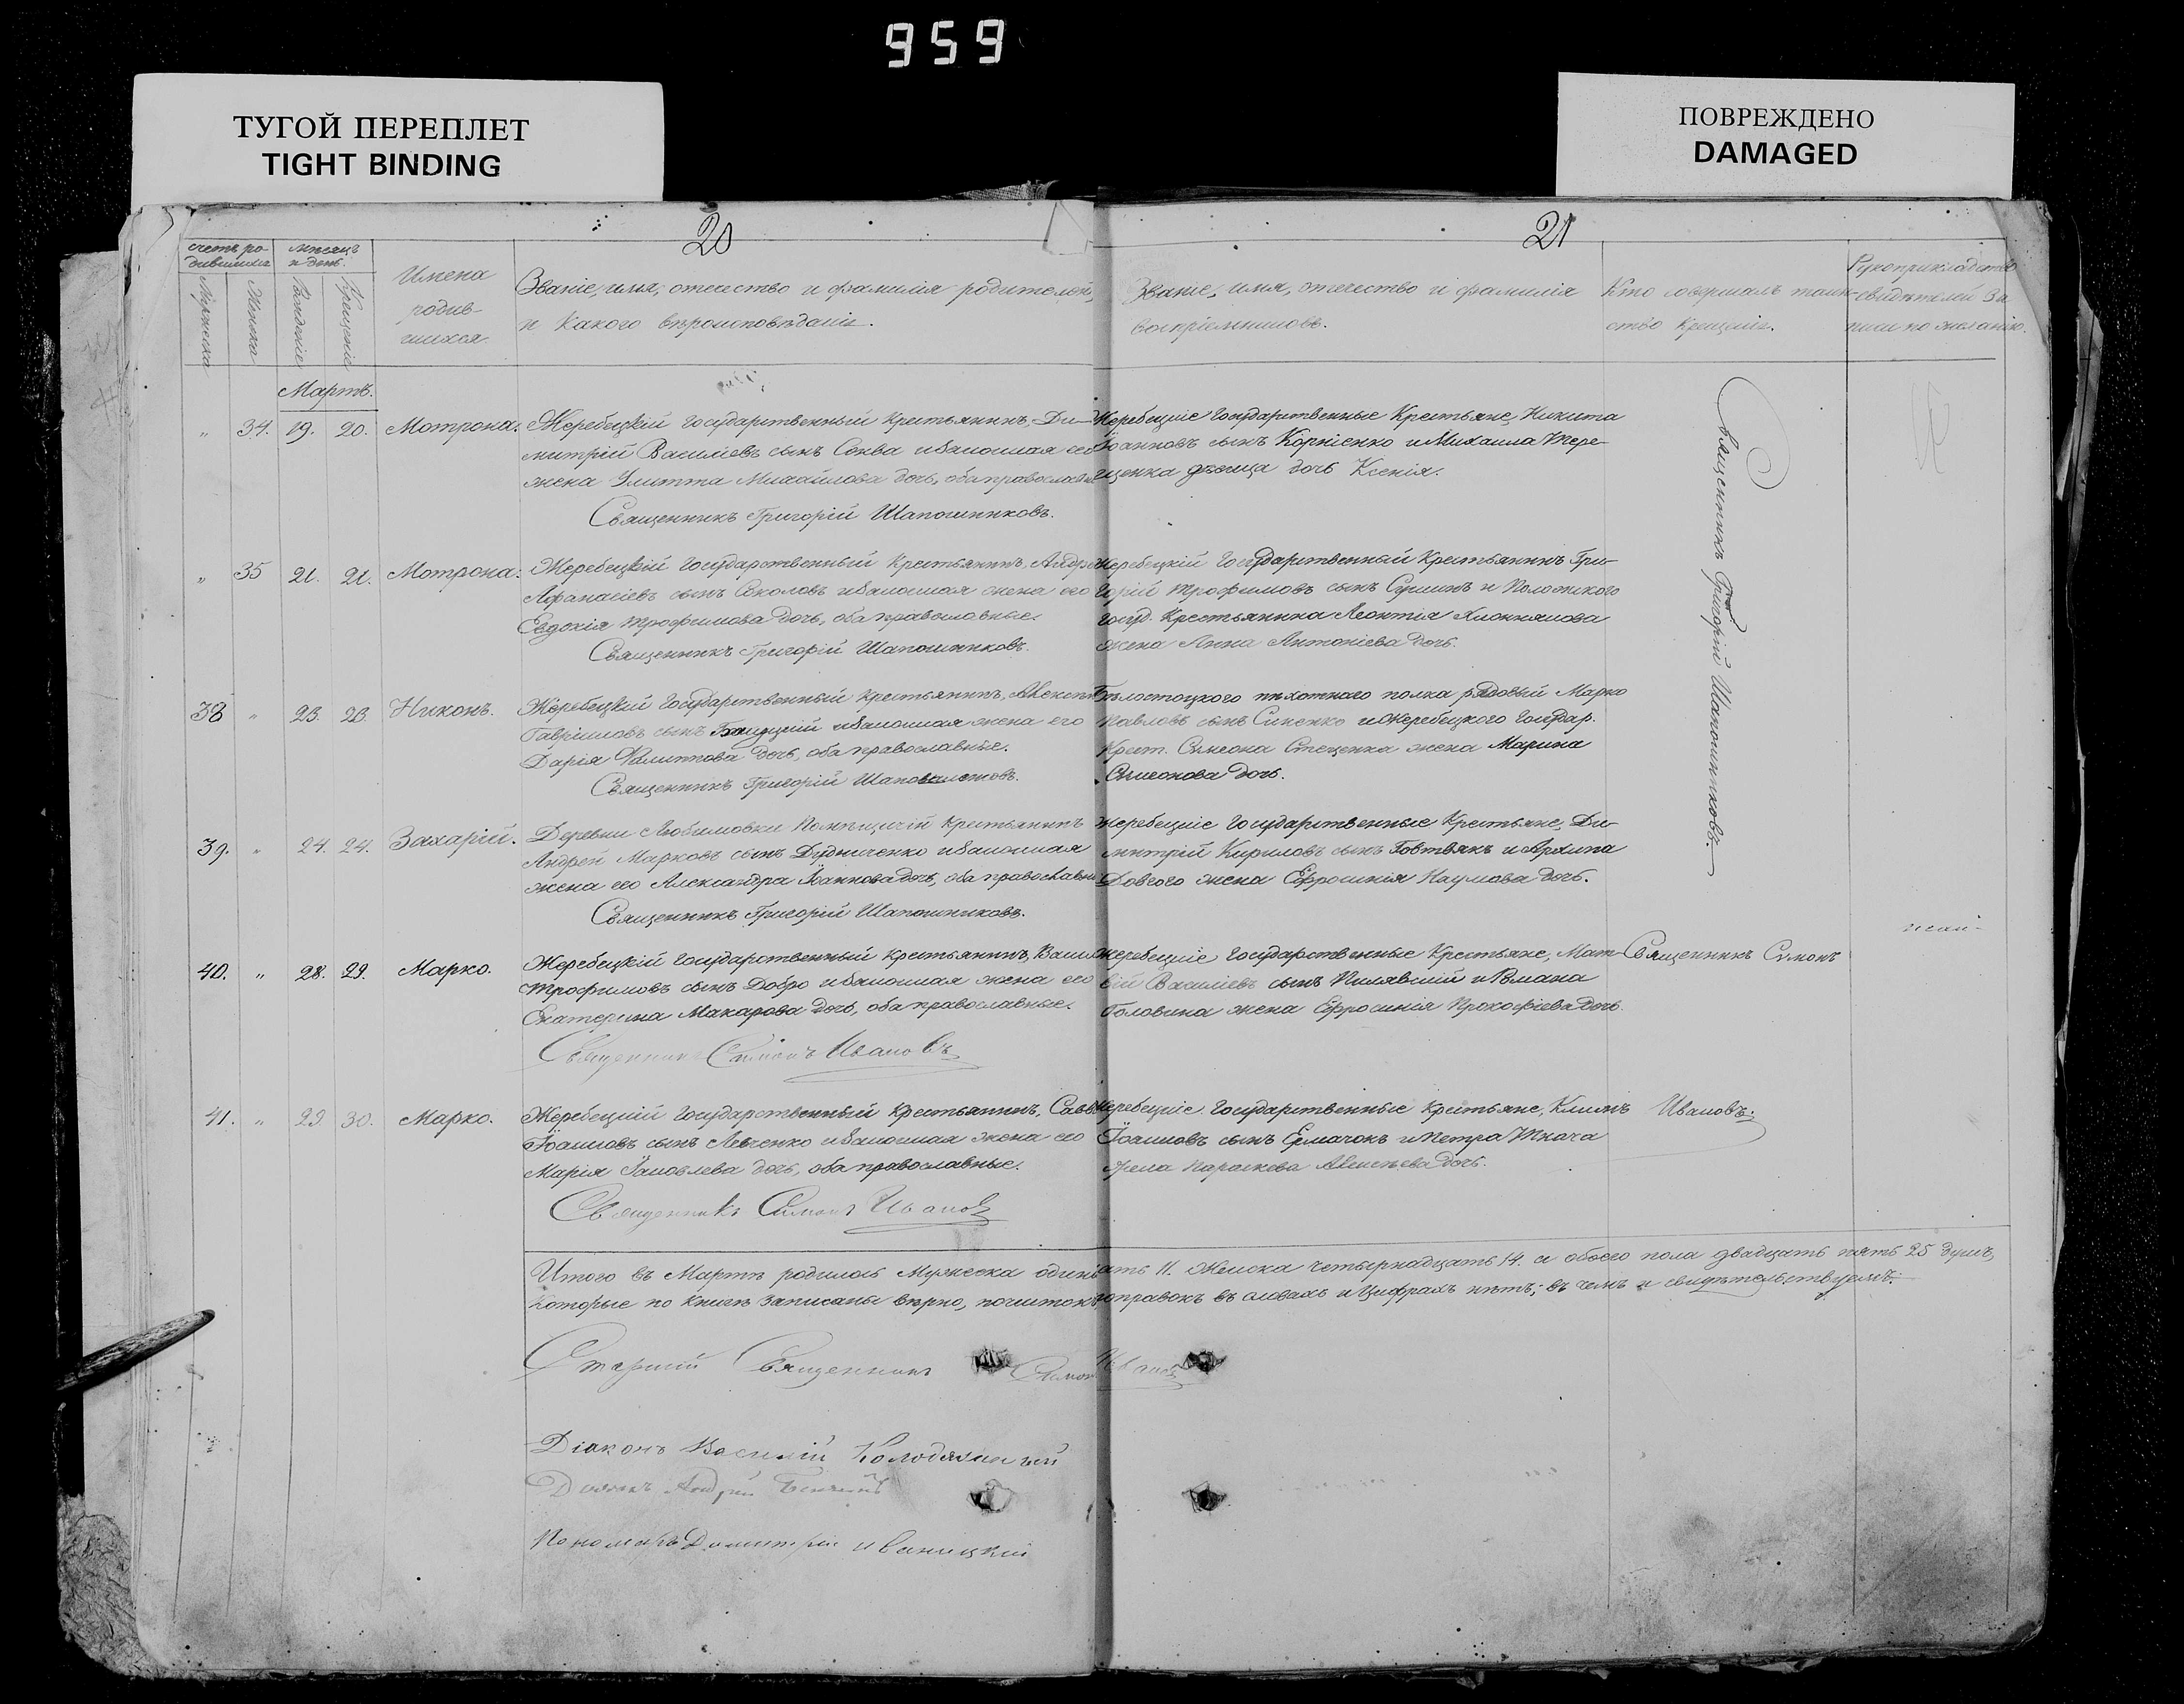 959
ТУГОЙ ПЕРЕПЛЕТ
TIGHT BINDING
ПОВРЕЖДЕНО
DAMAGED
20
21
счетъ ро-
дившихся
мѣсяцъ
и день.
Мужеска
Женска
Рожденіе
Крещеніе
Имена
родив-
шихся
Званіе, имя, отечество и фамилія родителей,
и какого вѣроисповѣданія.
Званіе, имя, отечество и фамилія
воспріемниковъ.
Кто совершалъ таин-
ство крещенія.
Рукоприкладство
свидѣтелей за
писи по желанію.
Мартъ.
„ 34. 19. 20. Мотрона.
Жеребецкій государственный крестьянинъ, Ди-
митрій Василіевъ сынъ Соква и законная его
жена Улитта Михайлова дочь, оба православные
Священникъ Григорій Шапошниковъ.
Жеребецкіе государственные крестьяне, Никита
Іоанновъ сынъ Корніенко и Михаила Тере-
щенка девица дочь Ксенія.
Священникъ Григорій Шапошниковъ.
„ 35 21. 21. Мотрона.
Жеребецкій государственный крестьянинъ, Андрей
Афанасіевъ сынъ Соколовъ и законная жена его
Евдокія Трофимова дочь, оба православные.
Священникъ Григорій Шапошниковъ.
Жеребецкій государственный крестьянинъ Гри-
горій Трофимовъ сынъ Сушинъ и Пологского
госуд. крестьянина Леонтія
жена Анна Антоніева дочь.
38 „ 23. 23. Никонъ.
Жеребецкій государственный крестьянинъ, Алексѣй
Гавриловъ сынъ и законная жена его
Дарія Филиппова дочь, оба православные.
Священникъ Григорій Шапошниковъ.
Бѣлостоцкого пѣхотнаго полка рядовый Марко
Павловъ сынъ Синенко и Жеребецкого государ.
крест. Симеона Стеценка жена Марина
Симеонова дочь.
39. „ 24. 24. Захарій.
Деревни Любимовки помѣщичій крестьянинъ
Андрей Марковъ сынъ Дудниченко и законная
жена его Александра Іоаннова дочь, оба православные
Священникъ Григорій Шапошниковъ.
Жеребецкіе государственные крестьяне, Ди-
митрій Кириловъ сынъ Говтвякъ и Архипа
Довгого жена Ефросинія Наумова дочь.
40. „ 28. 29. Марко.
Жеребецкій государственный крестьянинъ, Василій
Трофимовъ сынъ Добро и законная жена его
Екатерина Макарова дочь, оба православные.
Священникъ Симонъ Ивановъ
Жеребецкіе государственные крестьяне, Мат-
вій Василіевъ сынъ Пилявскій и Романа
Головина жена Ефросинія Прокофіева дочь.
Священникъ Симонъ
41. „ 29 30. Марко.
Жеребецкій государственный крестьянинъ, Савва
Іоанновъ сынъ Левченко и законная жена его
Марія Іаковлева дочь, оба православные.
Священникъ Симонъ Ивановъ
Жеребецкіе государственные крестьяне, Климъ
Іоанновъ сынъ Ермачокъ и Петра Ткача
жена Параскева Алексѣева дочь.
Ивановъ.
Итого въ Мартѣ родилось Мужеска одинадцать 11. Женска четырнадцать 14. а обоего пола двадцать пять 25 душъ,
которые по книгѣ записаны вѣрно, почистокъ и поправокъ въ словахъ и цифрахъ нѣтъ; въ чемъ и свидѣтельствуемъ.
Старшій Священникъ Симонъ Ивановъ
Діаконъ Василій Колодяжный
Дьячекъ Андрей
Пономарь Димитрій Иваницкій